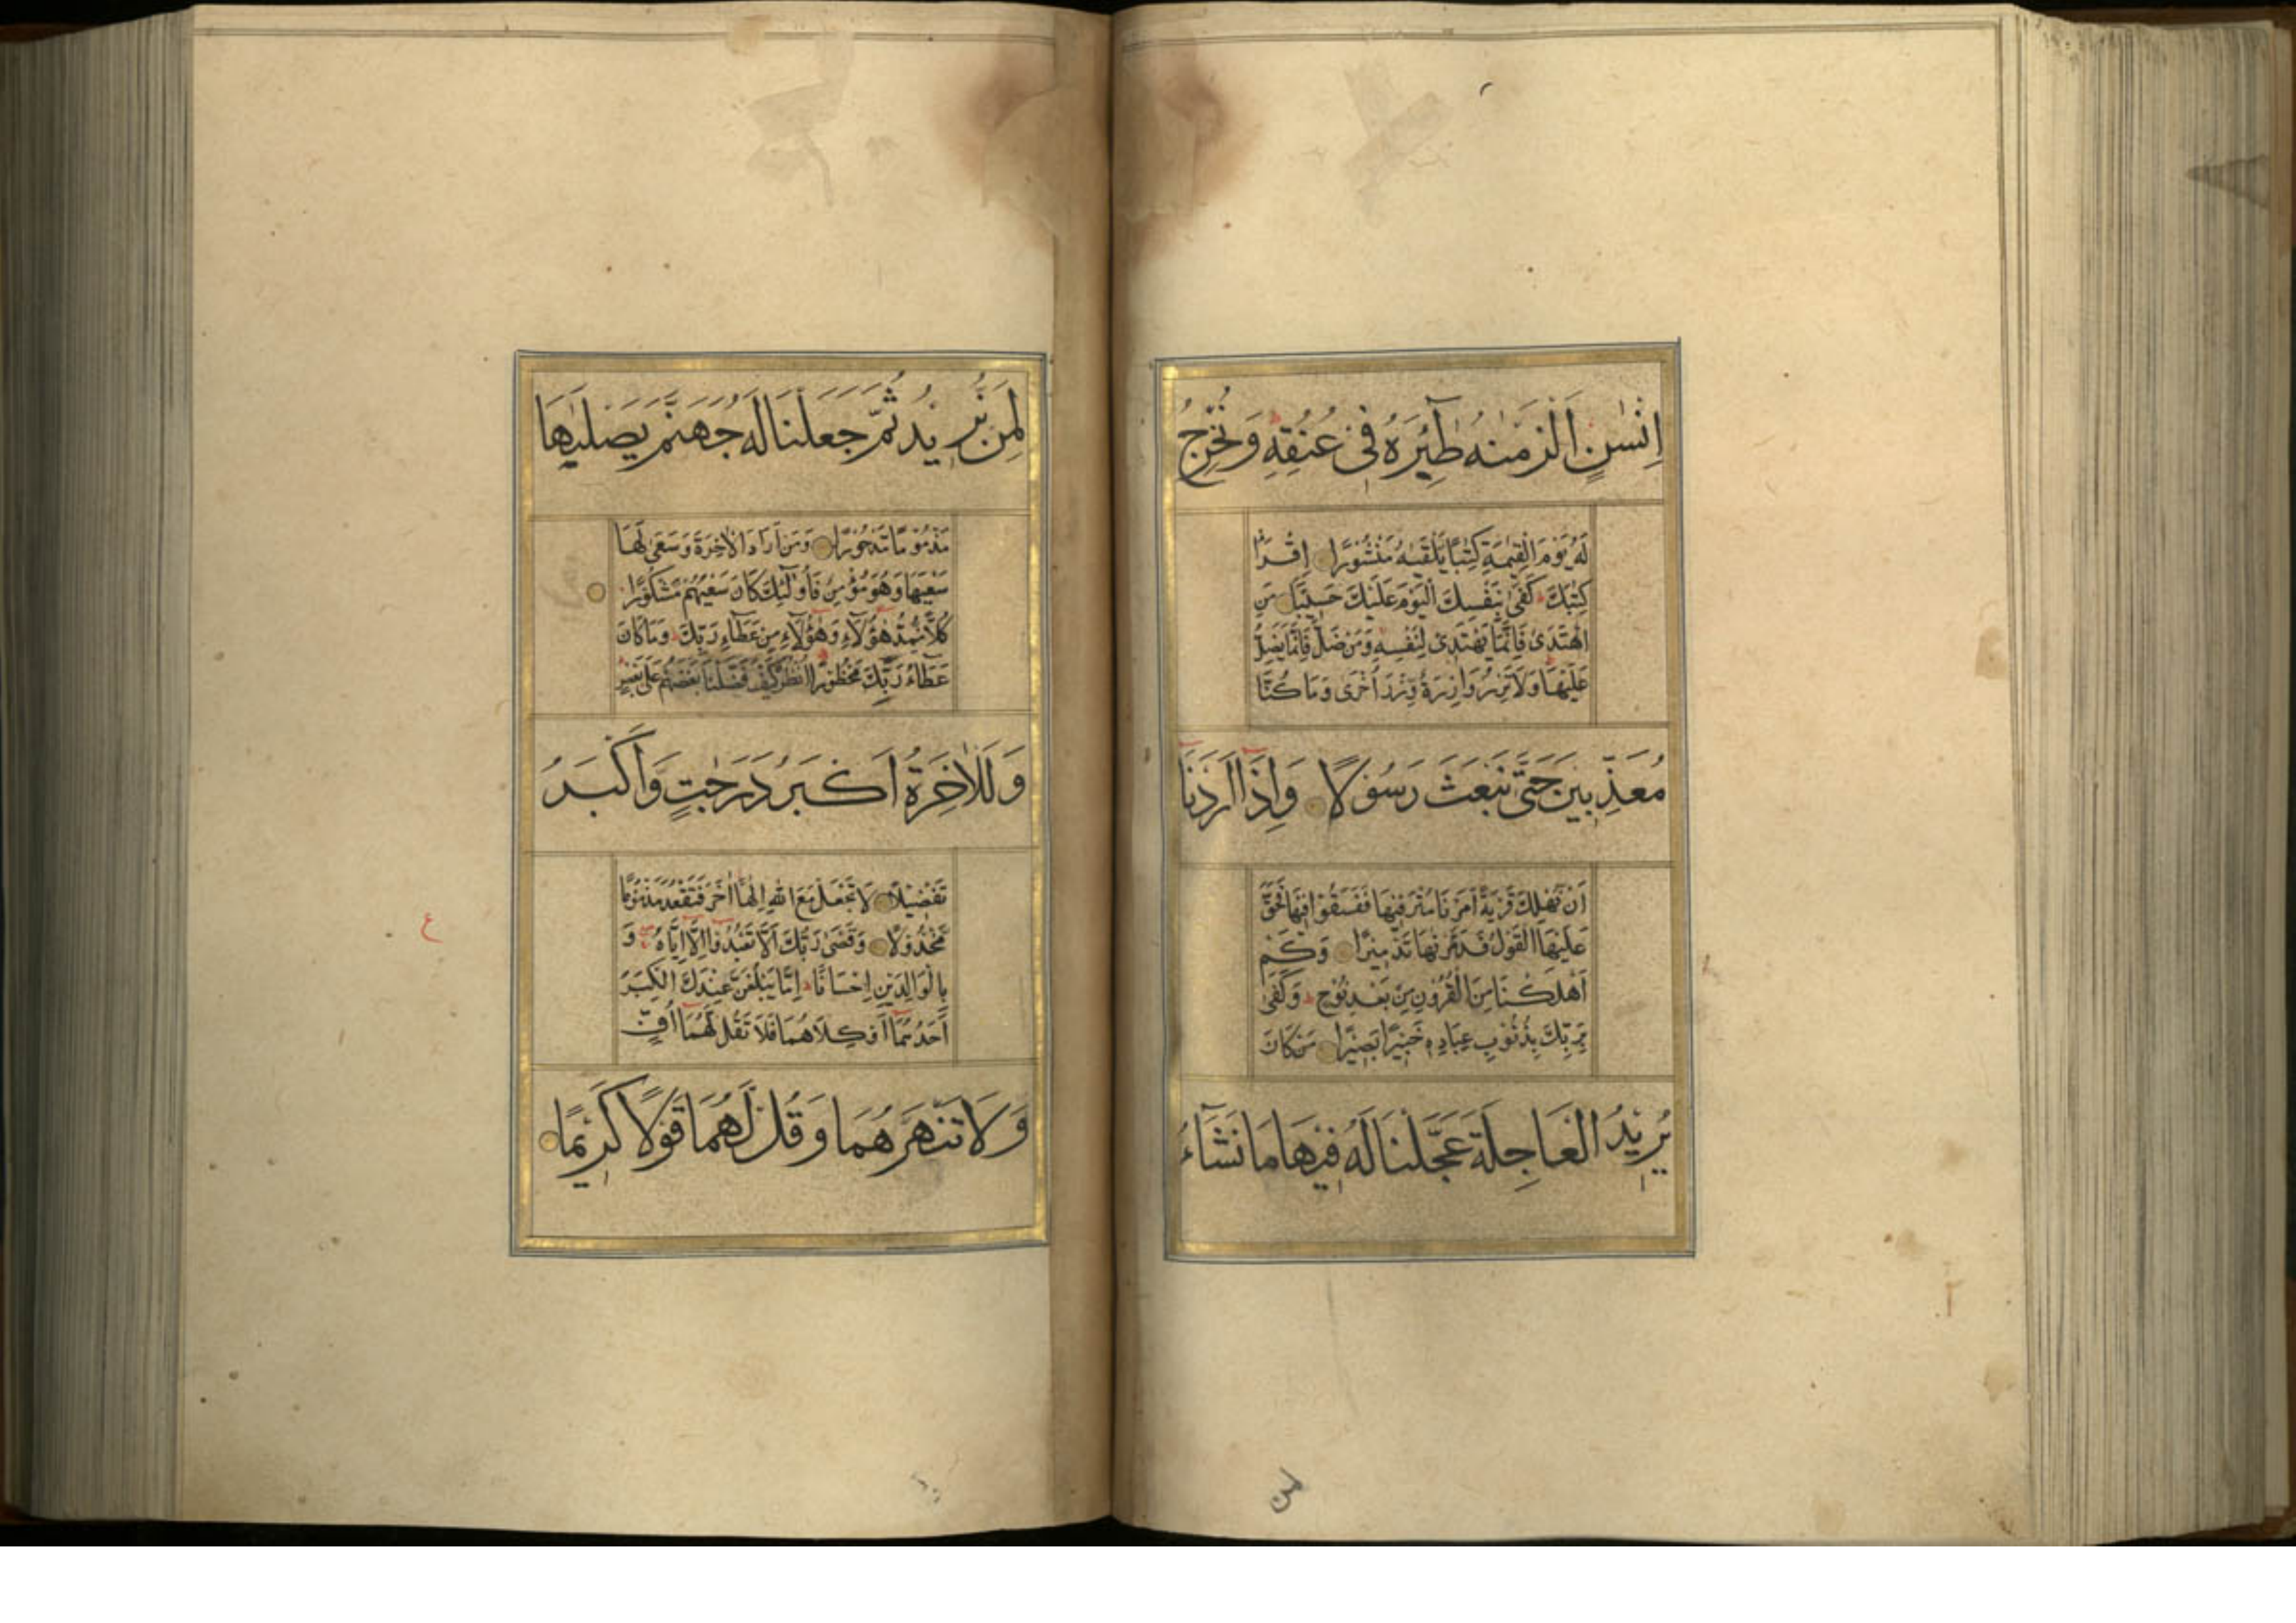 اِنْسٰنٍ اَلْزَمْنٰهُ طٰٓئِرَهُ فٖى عُنُقِهٖ وَنُخْرِجُ
لَهُ يَوْمَ الْقِيٰمَةِ كِتٰبًا يَلْقٰيهُ مَنْشُوْرًا اِقْرَاْ
كِتٰبَكَ كَفٰى بِنَفْسِكَ الْيَوْمَ عَلَيْكَ حَسٖيْبًا مَنِ
اهْتَدٰى فَاِنَّمَا يَهْتَدٖى لِنَفْسِهٖ وَمَنْ ضَلَّ فَاِنَّمَا يَضِلُّ
عَلَيْهَا وَلَا تَزِرُ وَازِرَةٌ وِّزْرَ اُخْرٰى وَمَا كُنَّا
مُعَذِّبٖيْنَ حَتّٰى نَبْعَثَ رَسُوْلًا وَاِذَآ اَرَدْنَآ
اَنْ نُهْلِكَ قَرْيَةً اَمَرْنَا مُتْرَفٖيْهَا فَفَسَقُوْا فٖيْهَا فَحَقَّ
عَلَيْهَا الْقَوْلُ فَدَمَّرْنٰهَا تَدْمٖيْرًا وَكَمْ
اَهْلَكْنَا مِنَ الْقُرُوْنِ مِنْ بَعْدِ نُوْحٍ وَكَفٰى
بِرَبِّكَ بِذُنُوْبِ عِبَادِهٖ خَبٖيْرًا بَصٖيْرًا مَنْ كَانَ
يُرٖيْدُ الْعَاجِلَةَ عَجَّلْنَا لَهُ فٖيْهَا مَا نَشَآءُ
لِمَنْ نُّرٖيْدُ ثُمَّ جَعَلْنَا لَهُ جَهَنَّمَ يَصْلٰيهَا
مَذْمُوْمًا مَّدْحُوْرًا وَمَنْ اَرَادَ الْاٰخِرَةَ وَسَعٰى لَهَا
سَعْيَهَا وَهُوَ مُؤْمِنٌ فَاُولٰٓئِكَ كَانَ سَعْيُهُمْ مَّشْكُوْرًا
كُلًّا نُّمِدُّ هٰٓؤُلَآءِ وَهٰٓؤُلَآءِ مِنْ عَطَآءِ رَبِّكَ وَمَا كَانَ
عَطَآءُ رَبِّكَ مَحْظُوْرًا اُنْظُرْ كَيْفَ فَضَّلْنَا بَعْضَهُمْ عَلٰى بَعْضٍ
وَلَلْاٰخِرَةُ اَكْبَرُ دَرَجٰتٍ وَاَكْبَرُ
تَفْضٖيْلًا لَا تَجْعَلْ مَعَ اللّٰهِ اِلٰهًا اٰخَرَ فَتَقْعُدَ مَذْمُوْمًا
مَّخْذُوْلًا وَقَضٰى رَبُّكَ اَلَّا تَعْبُدُوْٓا اِلَّآ اِيَّاهُ وَ
بِالْوَالِدَيْنِ اِحْسَانًا اِمَّا يَبْلُغَنَّ عِنْدَكَ الْكِبَرَ
اَحَدُهُمَآ اَوْ كِلَاهُمَا فَلَا تَقُلْ لَهُمَآ اُفٍّ
وَلَا تَنْهَرْهُمَا وَقُلْ لَّهُمَا قَوْلًا كَرٖيْمًا
ع